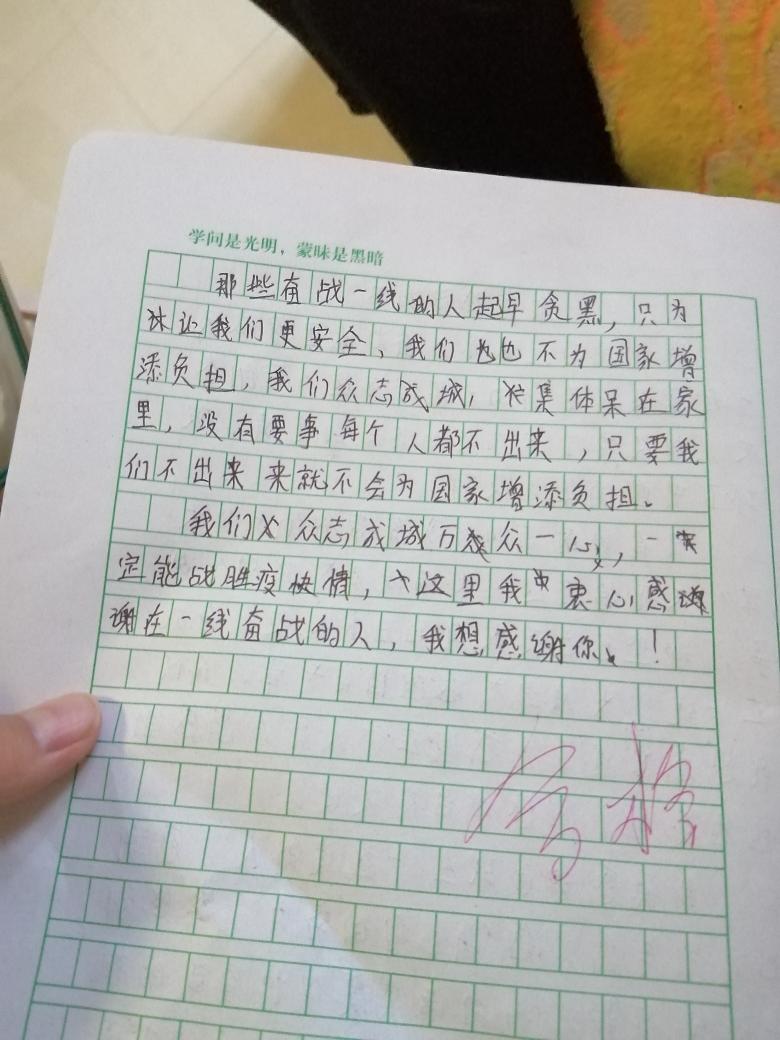 学问是光明，蒙昧是黑暗
那些奋战一线的人起早贪黑，只为
让我们更安全、我们也也不为国家增
添负担，我们众志成城，集体呆在家
里，没有要事每个人都不出来，只要我
们不出来来就不会为国家增添负担。
我们众志成城万众一心，一
定能战胜疫情，这里我衷心感
谢在一线奋战的人，我想感谢你、！